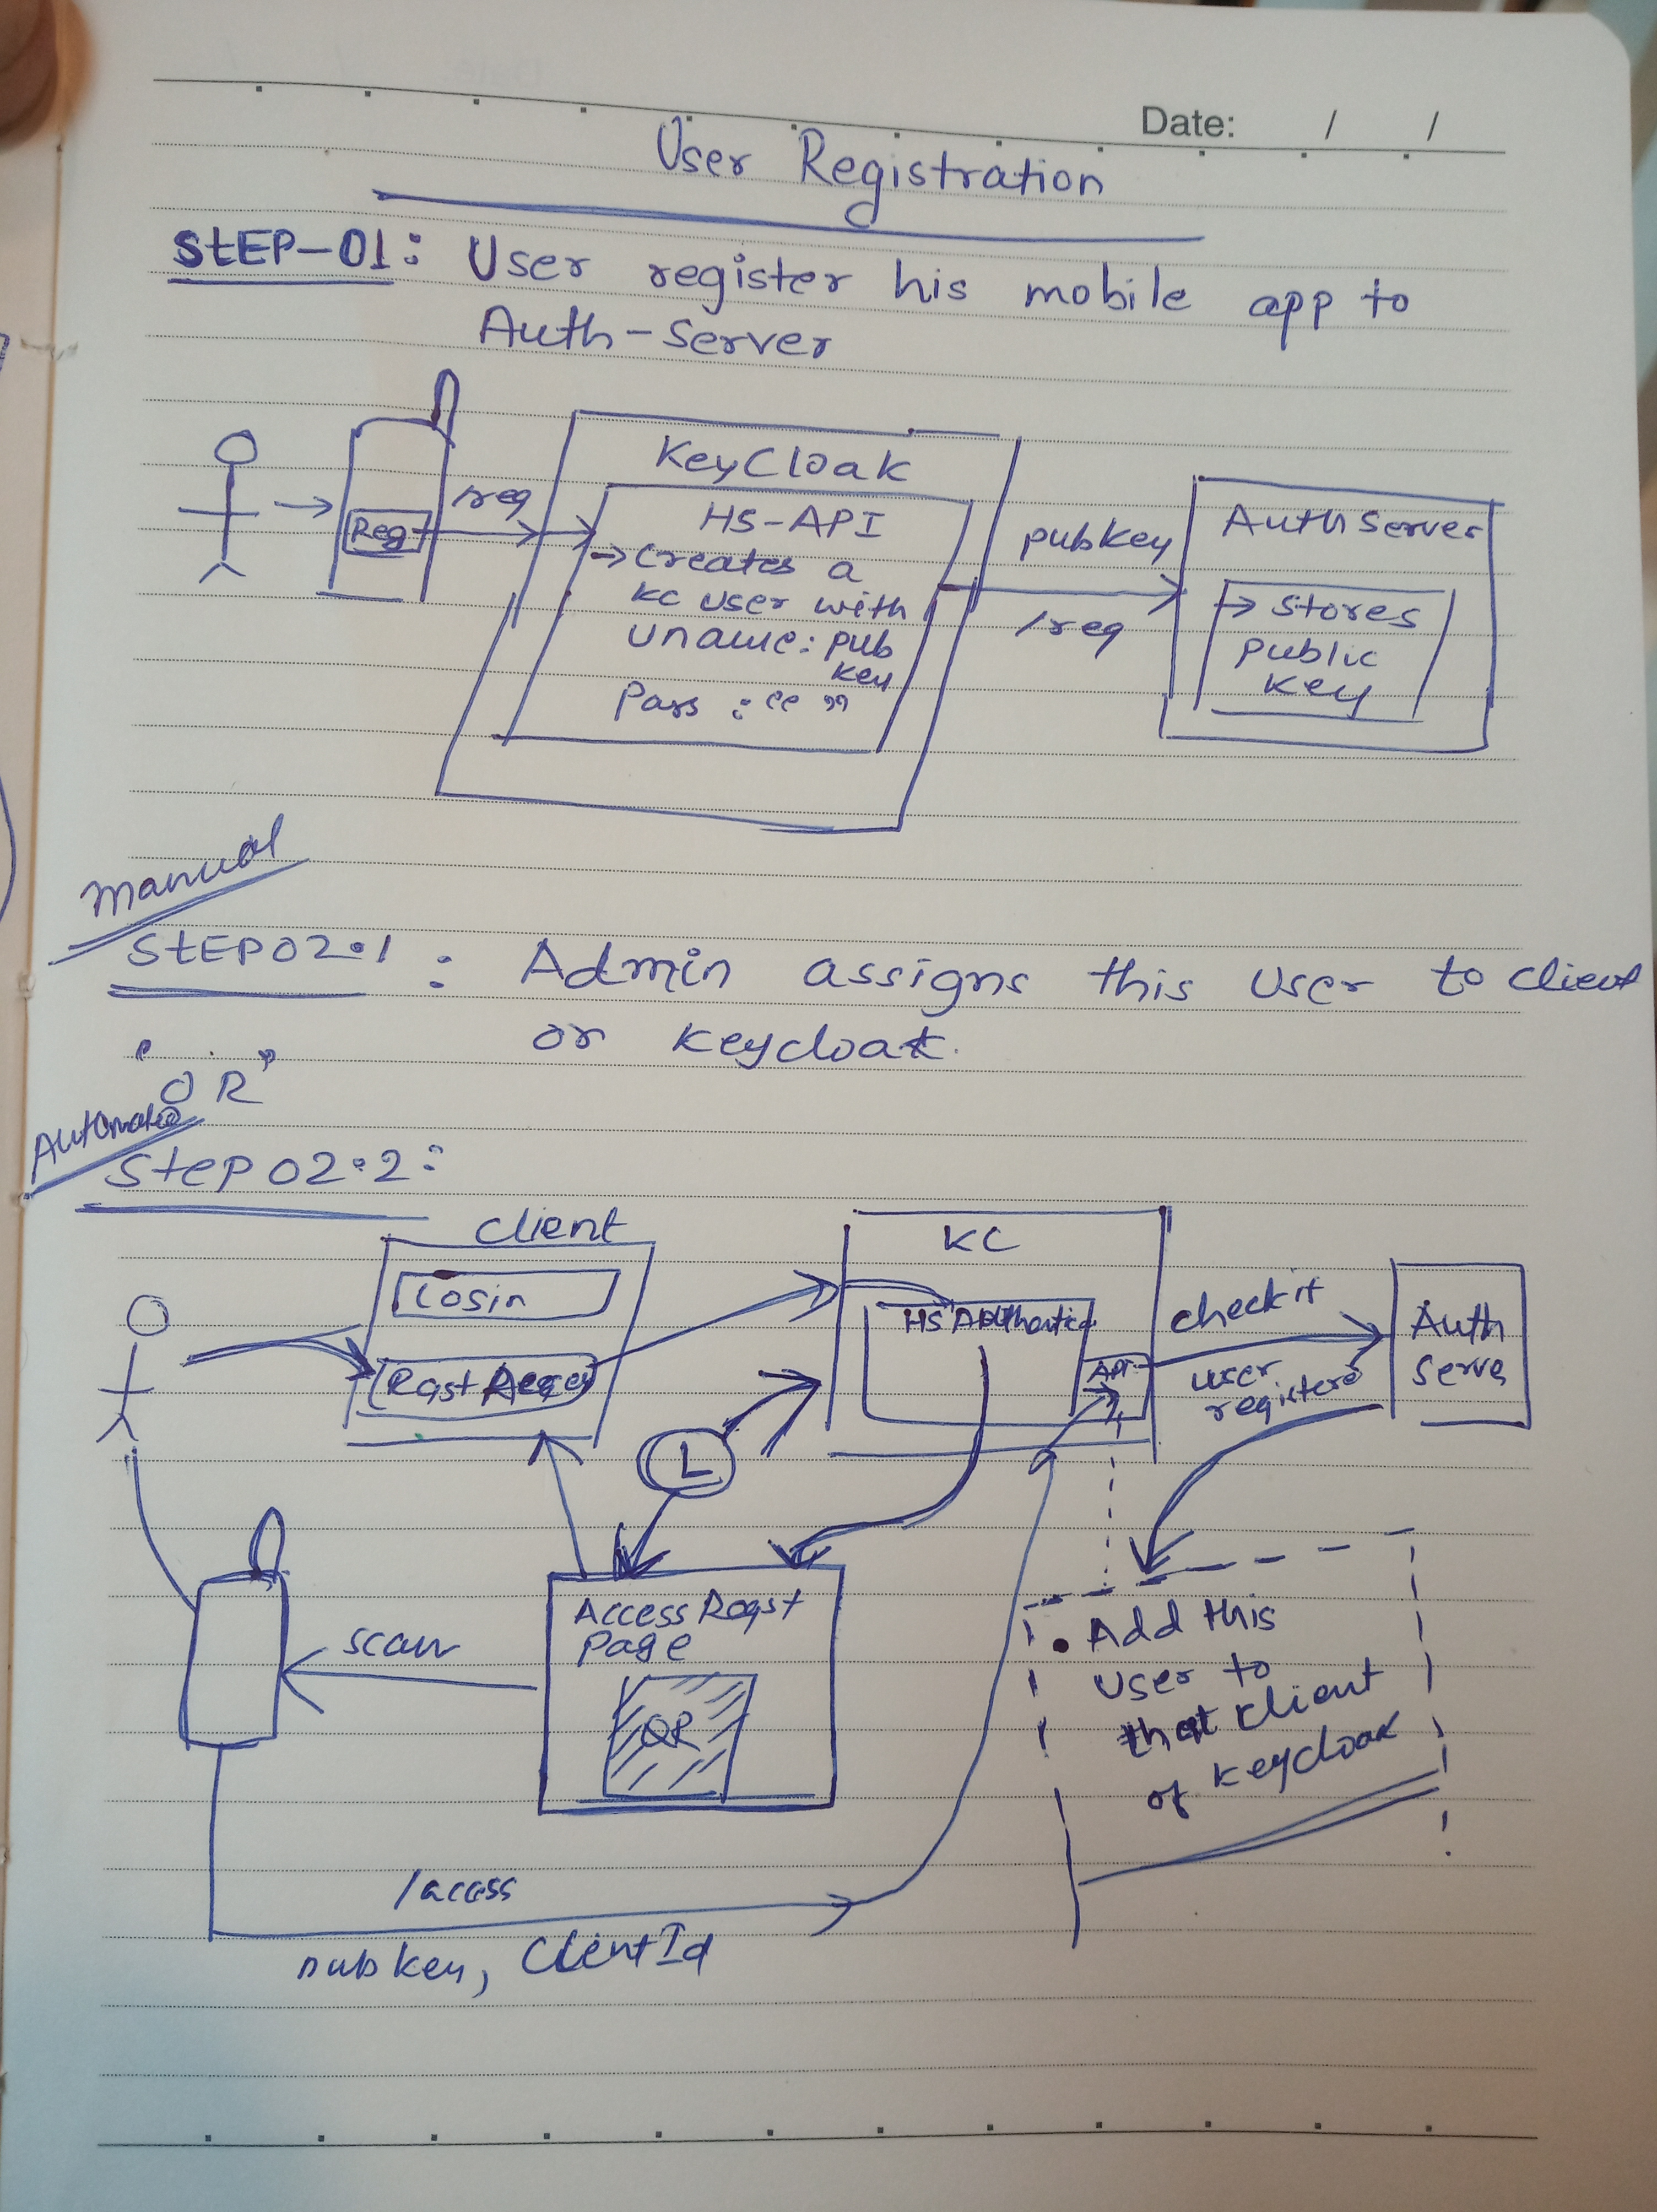 Date: / /
User Registration
StEP-01: User register his mobile app to
Auth-Server
KeyCloak
HS-API
→ Creates a
KC user with
Uname: pub
key
Pass : " "
Reg
/req
pubkey
/req
Auth Server
→ Stores
public
key
Manual
StEP02.1 : Admin assigns this User to client
or keycloak.
"OR"
Step 02.2:
Client
Login
Rqst
KC
HS
API
check if
user
registered
Auth
Serve
L
Access Rqst
Page
QR
scan
• Add this
user to
that client
of keycloak
/access
pubkey, ClientId